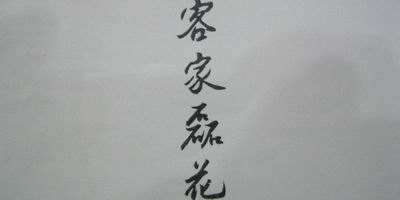 客家磊花